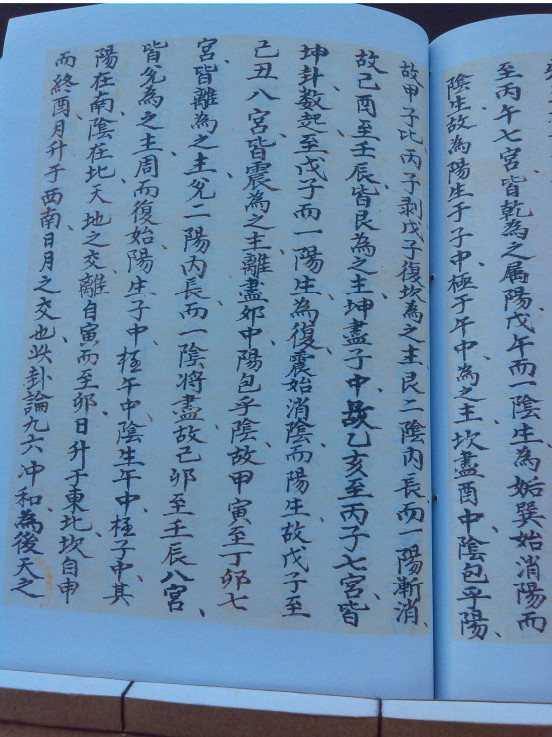 至丙午七宮、皆乾為之属陽、戊午而一陰生為姤、巽始消陽而
陰生、故為陽生于子中、極于午中、為之主、坎盡酉中、陰包乎陽、
故甲子比、丙子剥、戊子復、坎為之主、艮二陰内長、而一陽漸消、
故己酉至壬辰、皆艮為之主、坤盡子中、故乙亥至丙子七宮、皆
坤卦、数起至戊子而一陽生、為復、震始消陰、而陽生、故戊子至
己丑八宮、皆震為之主、離盡卯中、陽包乎陰、故甲寅至丁卯七
宮、皆離為之主、兌一陽内長、而一陰将盡、故己卯至壬辰八宮、
皆兌為之主、周而復始、陽生子中、極午中、陰生午中、極子中、其
陽在南、陰在北、天地之交、離自寅而至卯、日升于東北、坎自申
而終酉、月升于西南、日月之交也、此卦論九六冲和、為後天之